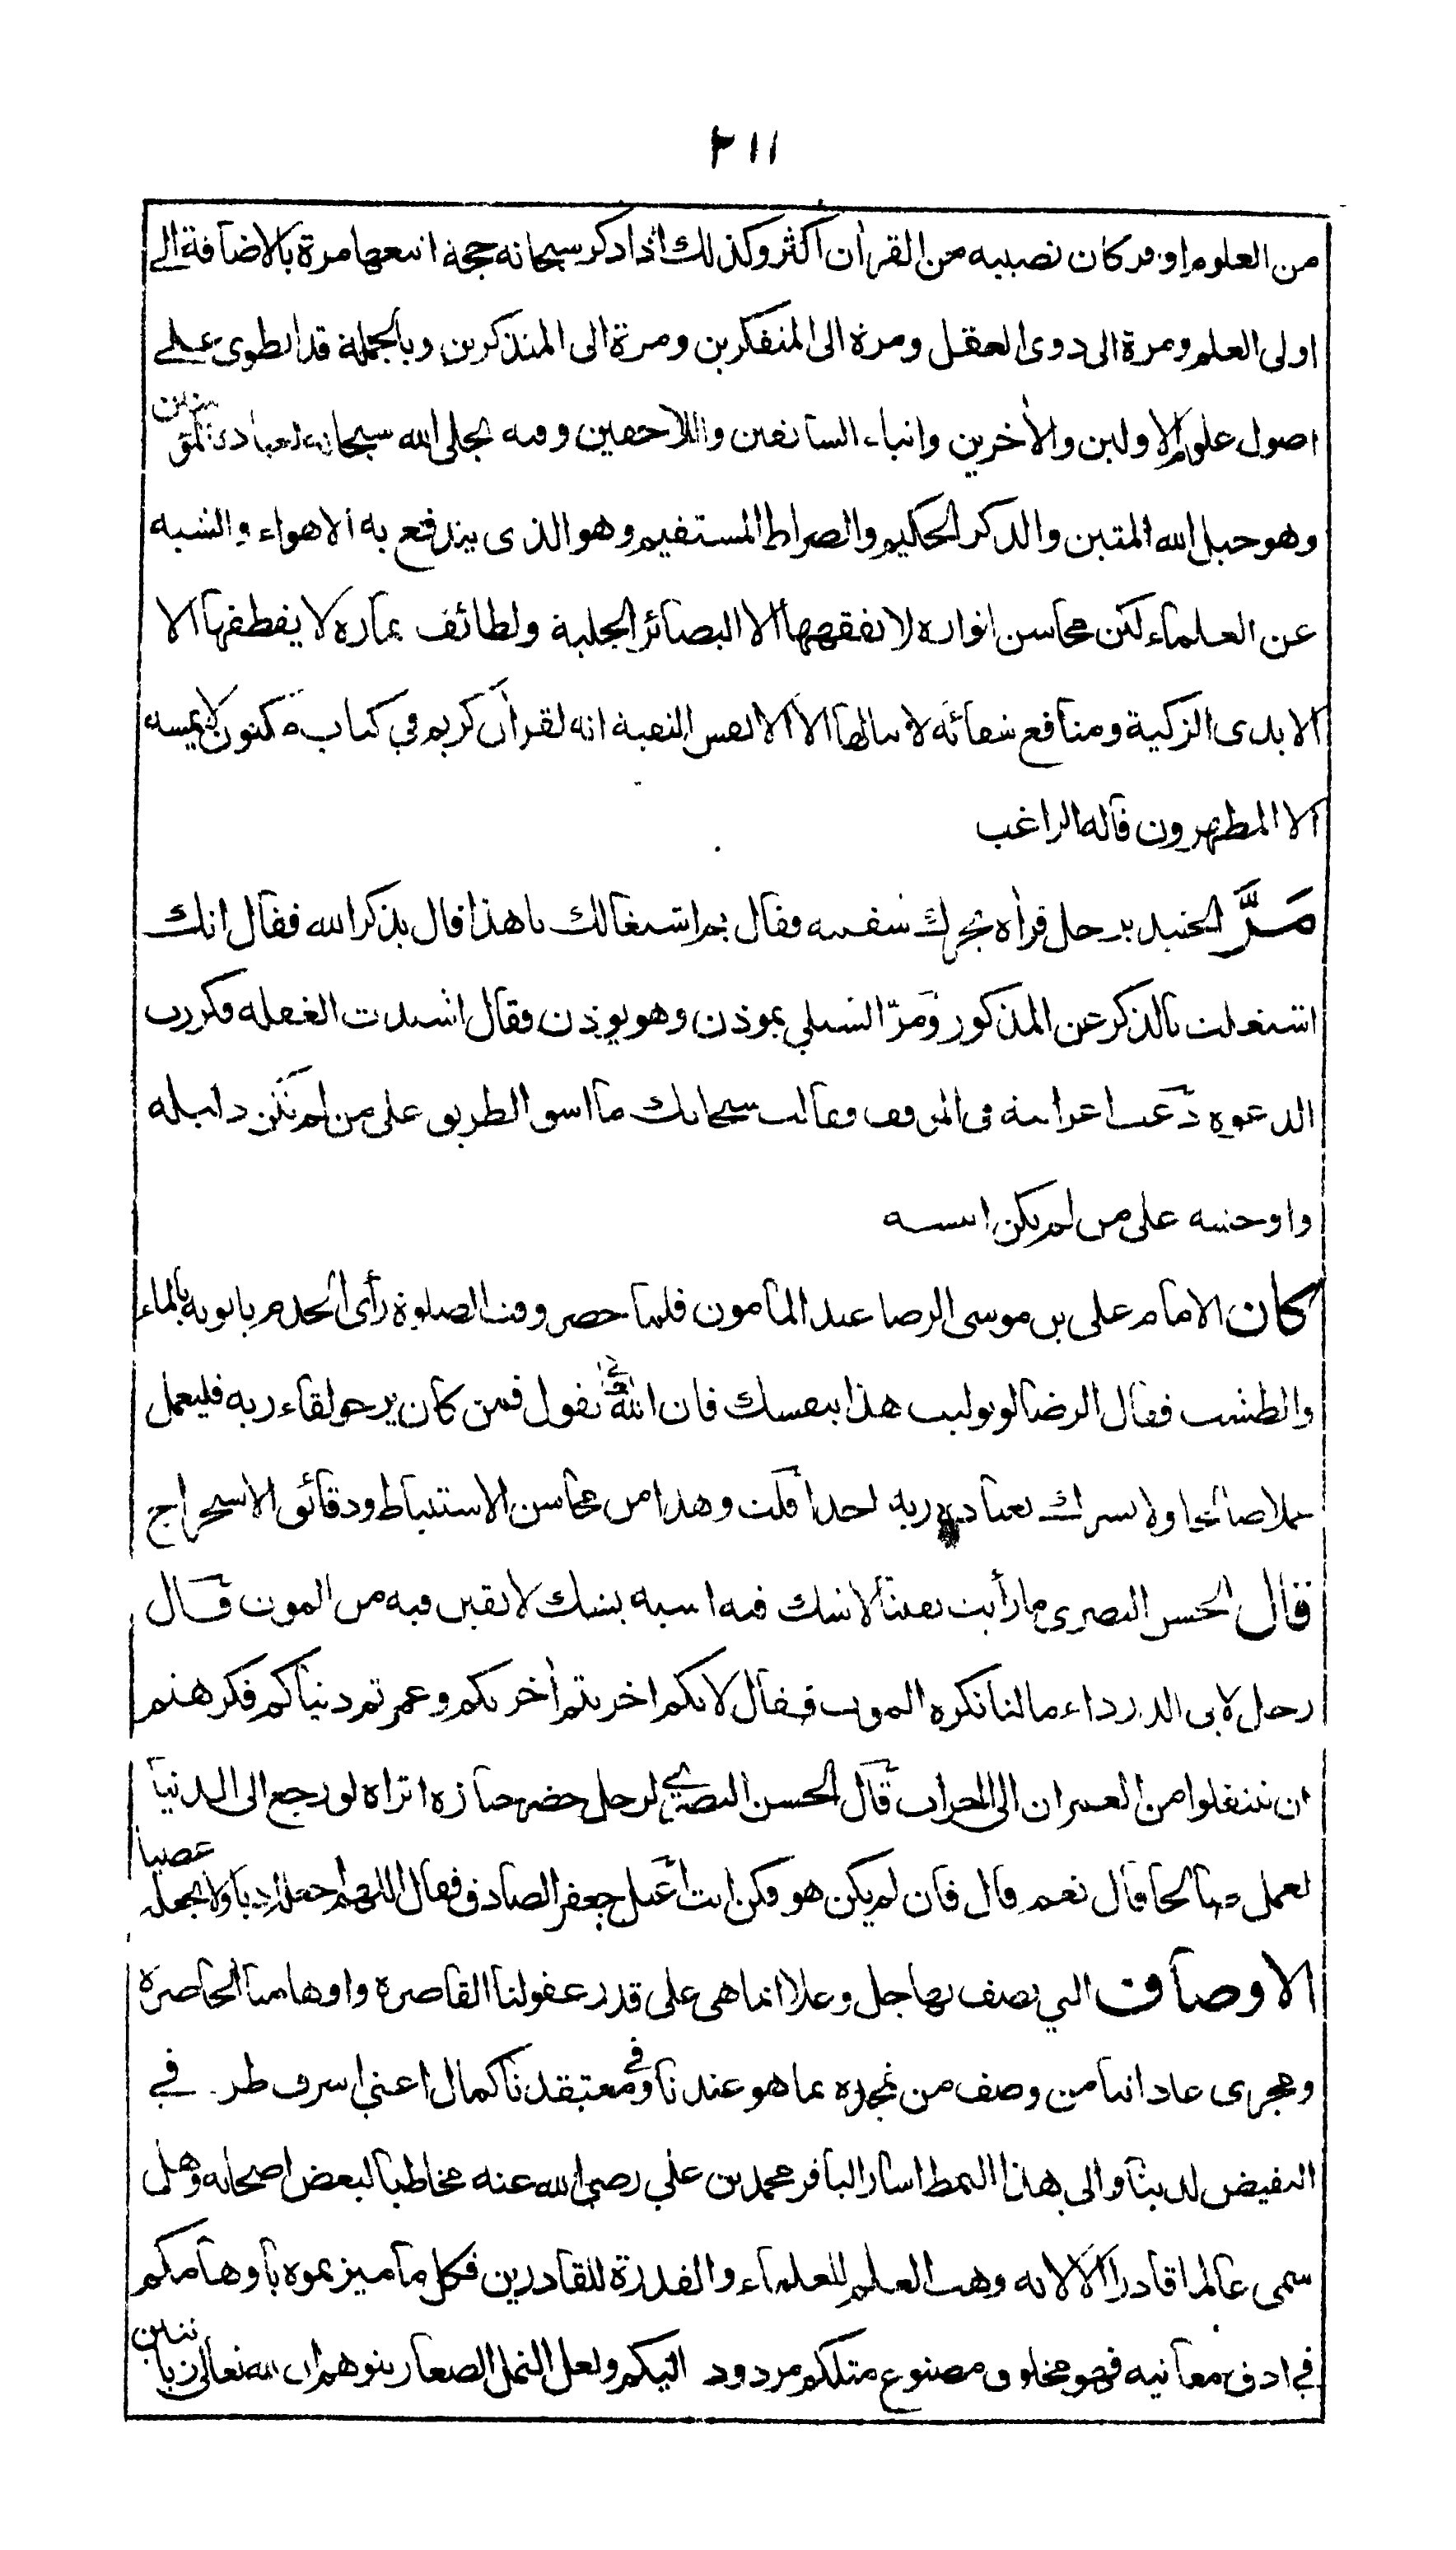 ٢١١
من العلوم اوفر كان نصيبه من القرأن أكثر وكذلك اذا ذكر سبحانه حجة اتبعها مرة بالاضافة الى
اولى العلم ومرة الى ذوى العقل ومرة الى المتفكرين ومرة الى المتذكرين وبالجملة قد انطوى على
اصول علوم الاولين والأخرين وانباء السابقين واللاحقين وفيه تجلى الله سبحانه لعباده المتقين
وهو حبل الله المتين والذكر الحكيم والصراط المستقيم وهو الذى يندفع به الاهواء والشبه
عن العلماء لكن محاسن انواره لا تفقهها الا البصائر الجلية ولطائف ثماره لا يقطفها الا
الايدى الزكية ومنافع شفائه لا ينالها الا الانفس النقية انه لقرأن كريم في كتاب مكنون لا يمسه
الا المطهرون قاله الراغب
مَرَّ الجنيد برجل فرأه يحرك شفتيه فقال بم اشتغالك يا هذا قال بذكر الله فقال انك
اشتغلت بالذكر عن المذكور ومرّ الشبلي بموذن وهو يوذن فقال اشتدت الغفله فكررت
الدعوه دعت اعرابية فى الموقف وقالت سبحانك ما اضيق الطريق على من لم تكن دليله
واوحشه على من لم تكن انيسه
كان الامام على بن موسى الرضا عند المأمون فلما حضر وقت الصلوة رأى الخدم ياتونه بالماء
والطشت فقال الرضا لو توليت هذا بنفسك فان الله تعالى يقول فمن كان يرجو لقاء ربه فليعمل
عملا صالحا ولا يشرك بعبادة ربه احدا قلت وهذا من محاسن الاستنباط ودقائق الاستخراج
قال الحسن البصرى ما رأيت يقينا لا شك فيه اشبه بشك لا يقين فيه من الموت قال
رجل لابى الدرداء ما لنا نكره الموت فقال لانكم اخربتم أخرتكم وعمرتم دنياكم فكرهتم
ان تنتقلوا من العمران الى الخراب قال الحسن البصري لرجل حضر جنازه اتراه لو رجع الى الدنيا
لعمل صالحا قال نعم قال فان لم يكن هو فكن انت جعفر الصادق فقال اللهم اجعله ادبا ولا تجعله غضبا
الاوصاف التي يصف بها جل وعلا انما هى على قدر عقولنا القاصرة واوهامنا الحاصرة
ومجرى عاداتنا من وصف من نمجده بما هو عندنا وفي معتقدنا كمال اعني اشرف طرفي
النقيض لدينا والى هذا النمط اشار الباقر محمد بن علي رضى الله عنه مخاطبا لبعض اصحابه وهل
سمى عالما قادرا الا لانه وهب العلم للعلماء والقدرة للقادرين فكل ما ميزتموه بأوهامكم
في ادق معانيه فهو مخلوق مصنوع مثلكم مردود اليكم ولعل النمل الصغار يتوهم ان الله تعالى زبانتين